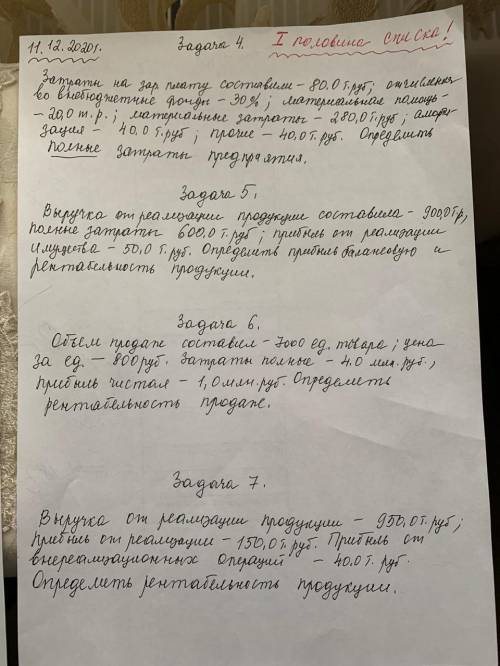 11.12.2020г. Задача 4. I половина списка!
Затраты на зар плату составили - 80.0 т.руб, отчисления
во внебюджетные фонды - 30%; материальная помощь -
- 20,0 т.р.; материальные затраты - 280,0 т.руб; аморти
зация - 40.0 т.руб; прочие - 40,0 т.руб. Определить
полные затраты предприятия.
Задача 5.
Выручка от реализации продукции составила - 900,0 т.р,
полные затраты 600,0 т.руб; прибыль от реализации
имущества - 50,0 т.руб. Определить прибыль балансовую и
рентабельность продукции.
Задача 6.
Объем продаж составил - 7000 ед. товара; цена
за ед. - 800 руб. Затраты полные - 4.0 млн. руб.,
прибыль чистая - 1,0 млн. руб. Определить
рентабельность продаж.
Задача 7.
Выручка от реализации продукции - 950,0 т.руб;
прибыль от реализации - 150,0 т.руб. Прибыль от
внереализационных операций - 40.0 т.руб.
Определить рентабельность продукции.